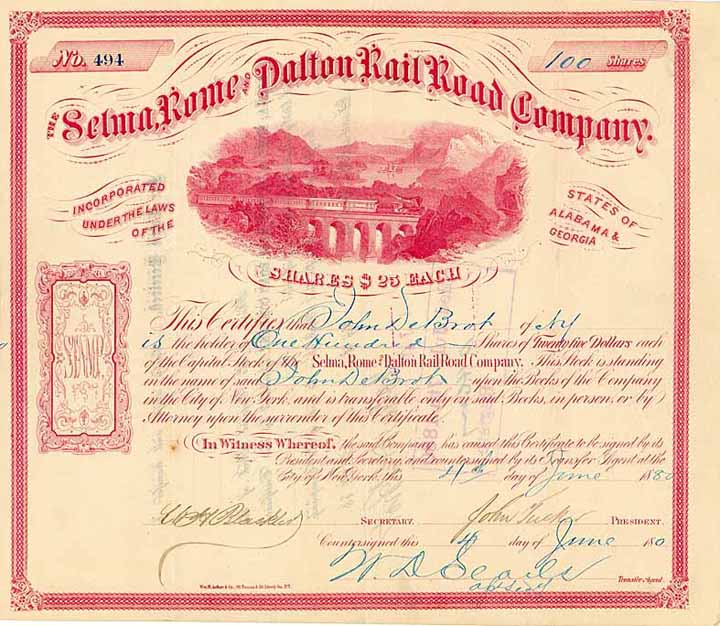 No. 494
100 Shares
THE Selma, Rome AND Dalton Rail Road Company.
INCORPORATED
UNDER THE LAWS
OF THE
STATES OF
ALABAMA &
GEORGIA
SHARES $25 EACH
STAMP
This Certifies that John DeBrot of NY
is the holder of One Hundred Shares of Twenty five Dollars each
of the Capital Stock of the Selma, Rome and Dalton Rail Road Company. This Stock is standing
in the name of said John DeBrot upon the Books of the Company
in the City of New York, and is transferable only on said Books, in person, or by
Attorney upon the surrender of this Certificate.
In Witness Whereof, the said Company, has caused this Certificate to be signed by its
President and Secretary, and countersigned by its Transfer Agent at the
City of New York, this 4th day of June 1880
SECRETARY. John Tucker PRESIDENT.
Countersigned this 4 day of June 1880
W. D.
Transfer Agent.